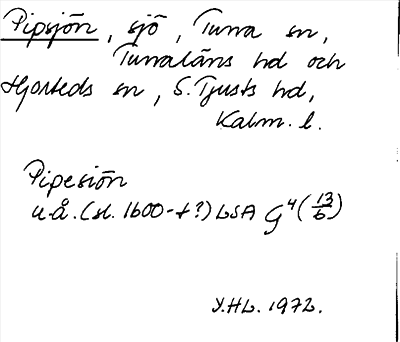 Pipsjön, sjö, Tuna sn,
Tunaläns hd och
Hjorteds sn, S. Tjusts hd,
Kalm. l.
Pipesiön
u.å. (sl. 1600-t?) LSA G⁴ (13/6)
Y.HL. 1972.